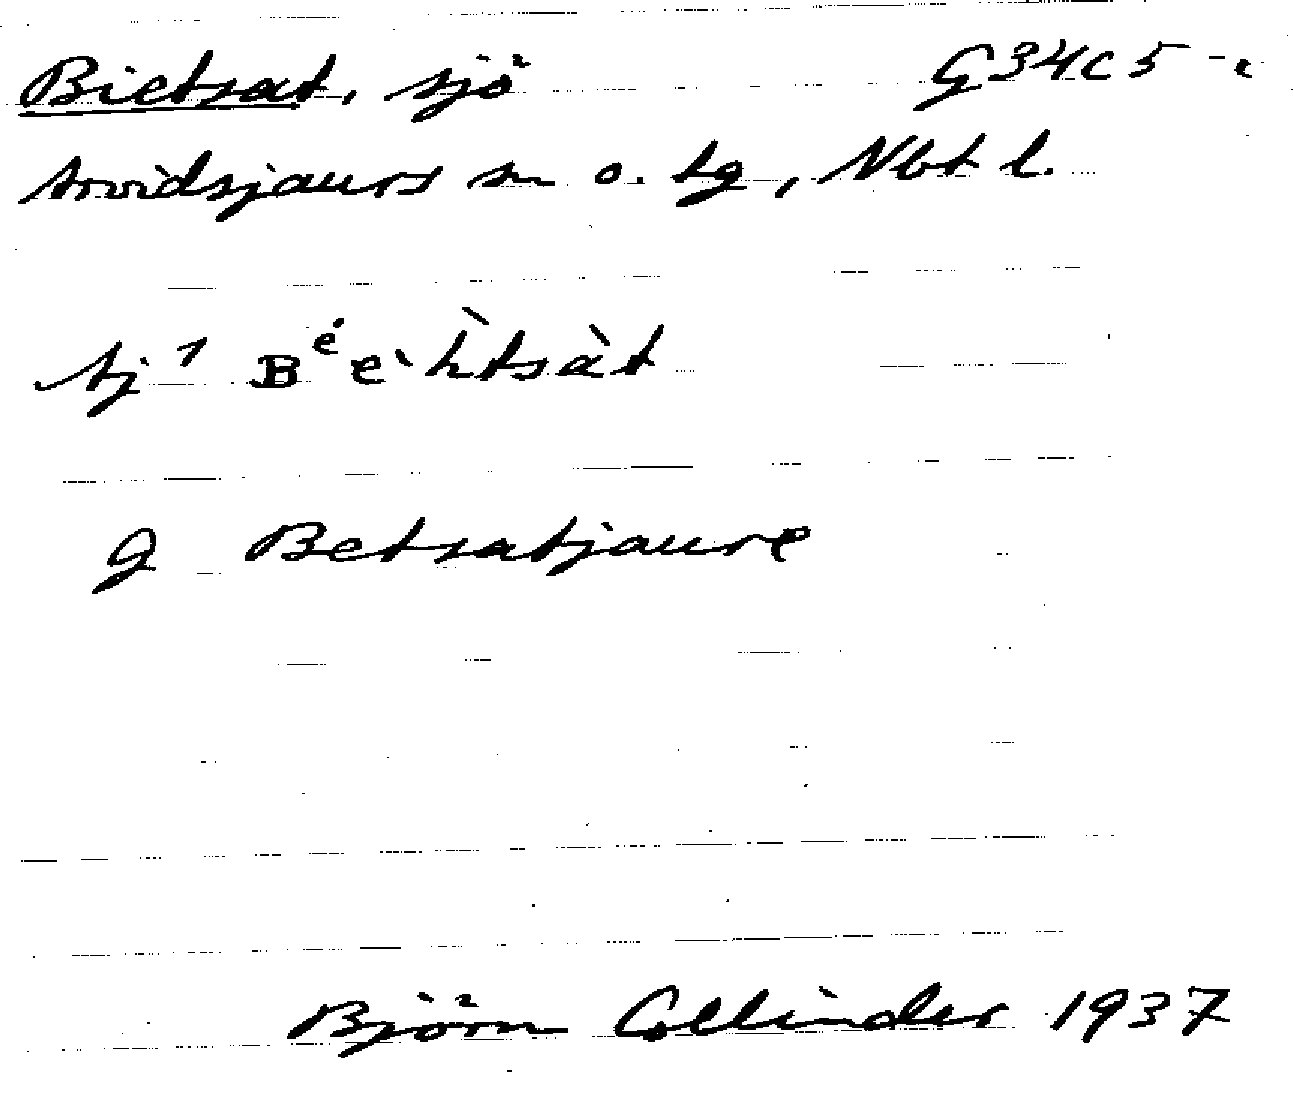 Bietsat, sjö G34c5
Arvidsjaurs sn o. tg, Nbt l.
Aj 1 Bᵉ́èh̀tsàt
g Betsatjaure
Björn Collinder 1937